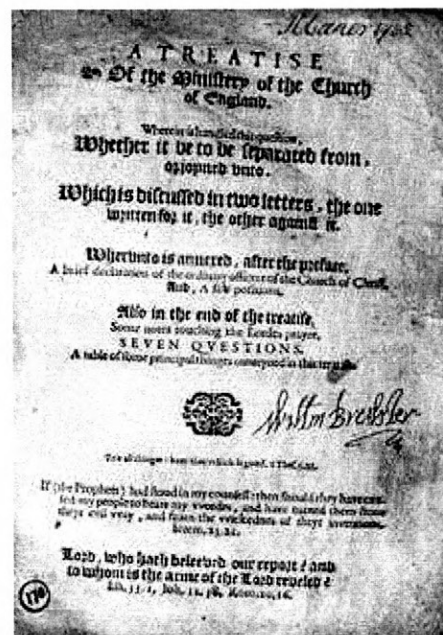 A TREATISE
Of the Ministery of the Church
of England.
Wherein is handled this question,
Whether it be to be separated from,
or joyned vnto.
Which is discussed in two letters, the one
written for it, the other against it.
Wherunto is annexed, after the preface,
A brief declaration of the ordinary officers of the Church of Christ.
And, A few positions.
Also in the end of the treatise,
Some notes touching the Lordes prayer,
SEVEN QVESTIONS.
A table of some principal things conteyned in this treatise.
Try all things: keep that which is good. 1 Thes. 5.21.
If (the Prophets) had stood in my counsell: then should they have
my people to heare my wordes, and have turned them from
theyr evil way, and from the wickednes of theyr inventions.
23.22.
Lord, who hath beleeved our report? and
to whom is the arme of the Lord reveled?
53.1, Joh. 12.38, Rom. 10.16.
170